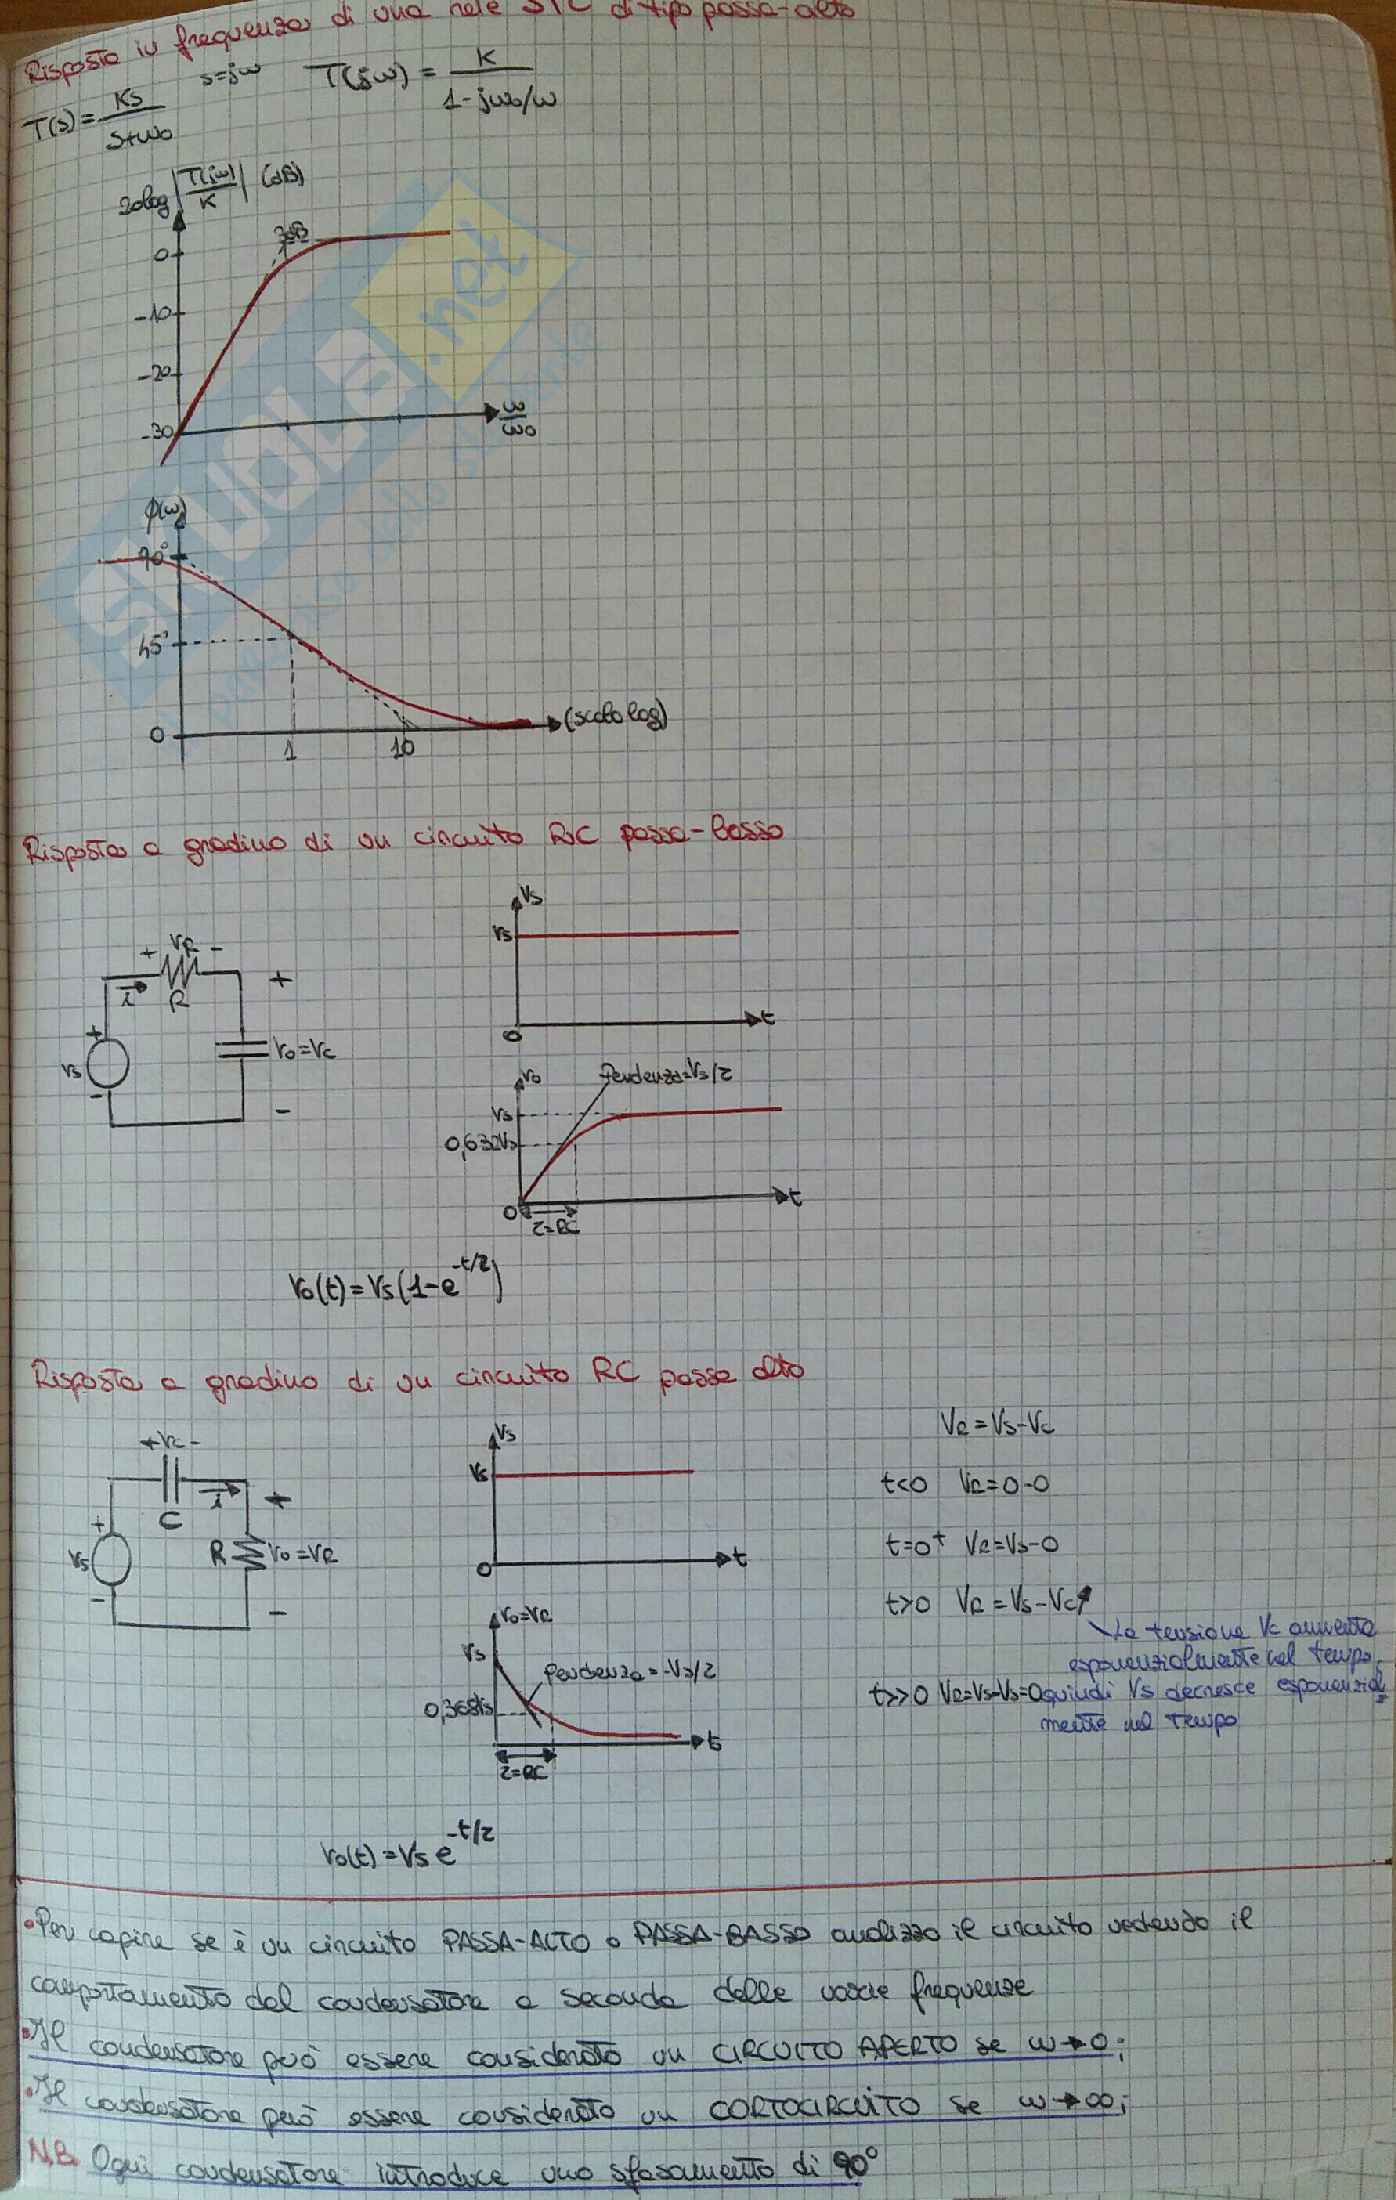 Risposta in frequenza di una rete STC di tipo passa-alto
T(s)=Ks/(s+ω₀) s=jω T(jω) = K/(1-jω₀/ω)
20log|T(jω)/K| (dB)
3dB
0
-10
-20
-30
ω/ω₀
φ(ω)
90°
45°
0
1
10
(scala log)
SKUOLA.net
Risposta a gradino di un circuito RC passa-basso
+ VR -
i
R
+
vs
-
+
vo=vc
-
vs
Vs
0
t
vo
Pendenza=Vs/τ
Vs
0,632Vs
0
τ=RC
t
vo(t)=Vs(1-e^-t/τ)
Risposta a gradino di un circuito RC passa alto
+vc-
C
i
+
vs
-
R
+
vo=vR
-
vs
Vs
0
t
vo=vR
Vs
Pendenza=-Vs/τ
0,368Vs
t
τ=RC
vo(t)=Vs e^-t/τ
VR=Vs-Vc
t<0 VR=0-0
t=0⁺ VR=Vs-0
t>0 VR=Vs-Vc↑
La tensione Vc aumenta
esponenzialmente nel tempo,
t>>0 VR=Vs-Vs=0 quindi Vs decresce esponenzial
mente nel tempo
•Per capire se è un circuito PASSA-ALTO o PASSA-BASSO analizzo il circuito vedendo il
comportamento del condensatore a seconda delle varie frequenze
•Il condensatore può essere considerato un CIRCUITO APERTO se ω→0;
•Il condensatore può essere considerato un CORTOCIRCUITO se ω→∞;
N.B. Ogni condensatore introduce uno sfasamento di 90°